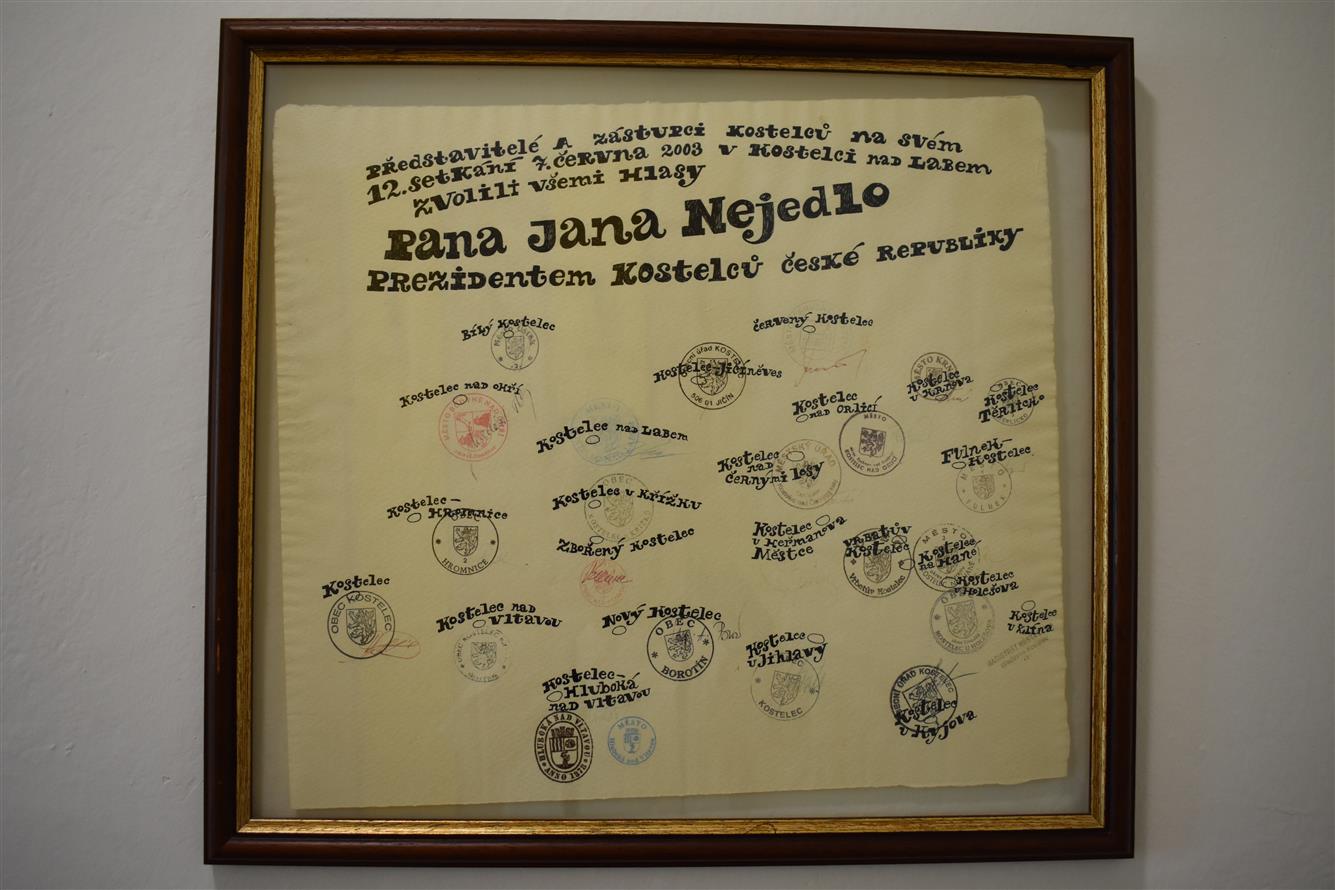 Představitelé a zástupci Kostelců na svém
12. setkání 7. června 2003 v Kostelci nad Labem
zvolili všemi hlasy
Pana Jana Nejedlo
Prezidentem Kostelců České republiky
Bílý Kostelec
Červený Kostelec
Kostelec-Jičíněves
KOSTELEC
506 01 JIČÍN
Kostelec nad Ohří
Kostelec
nad Orlicí
MĚSTO
KOSTELEC NAD ORLICÍ
Kostelec
u Krnova
MĚSTO KRN
Kostelec
Těrlicko
Kostelec nad Labem
MĚSTO
Kostelec
nad
Černými lesy
MĚSTSKÝ ÚŘAD
Fulnek-
Kostelec
FULNEK
Kostelec-
Hromnice
OBEC
2
HROMNICE
Kostelec v Křížku
OBEC
Zbořený Kostelec
Kostelec
u Heřmanova
Městce
Vrbatův
Kostelec
Vrbatův Kostelec
Kostelec
na Hané
MĚSTO
Kostelec
u Holešova
KOSTELEC U HOLEŠOVA
Kostelec
u Zlína
Kostelec
OBEC KOSTELEC
Kostelec nad
Vltavou
Nový Kostelec
OBEC
BOROTÍN
Kostelec
u Jihlavy
KOSTELEC
Kostelec-
Hluboká
nad Vltavou
HLUBOKÁ NAD VLTAVOU
ANNO 1872
MĚSTO
Hluboká nad Vltavou
Kostelec
u Kyjova